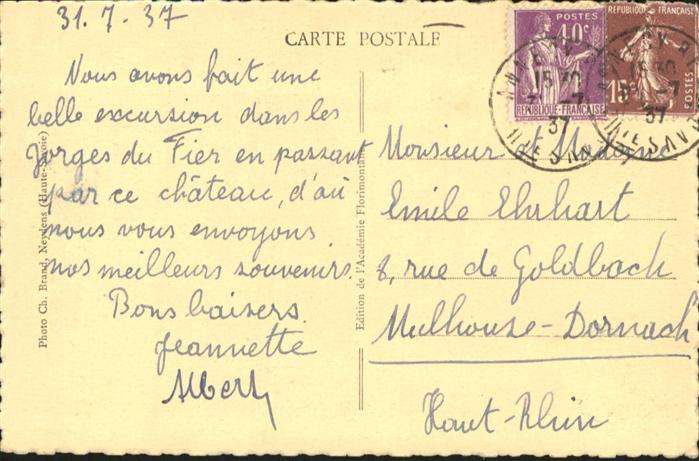 31.7-37
CARTE POSTALE
Nous avons fait une
belle excursion dans les
Gorges du Fier en passant
par ce château, d'où
nous vous envoyons
nos meilleurs souvenirs.
Bons baisers
Jeannette
Albert
Photo Ch. Brand, Neydens (Haute-Savoie)
Edition de l'Académie Florimontane
POSTES
40c
REPUBLIQUE FRANÇAISE
REPUBLIQUE FRANÇAISE
15
POSTES
15 30
37
Monsieur et Madame
Emile Ehrhart
8, rue de Goldbach
Mulhouse-Dornach
Haut-Rhin